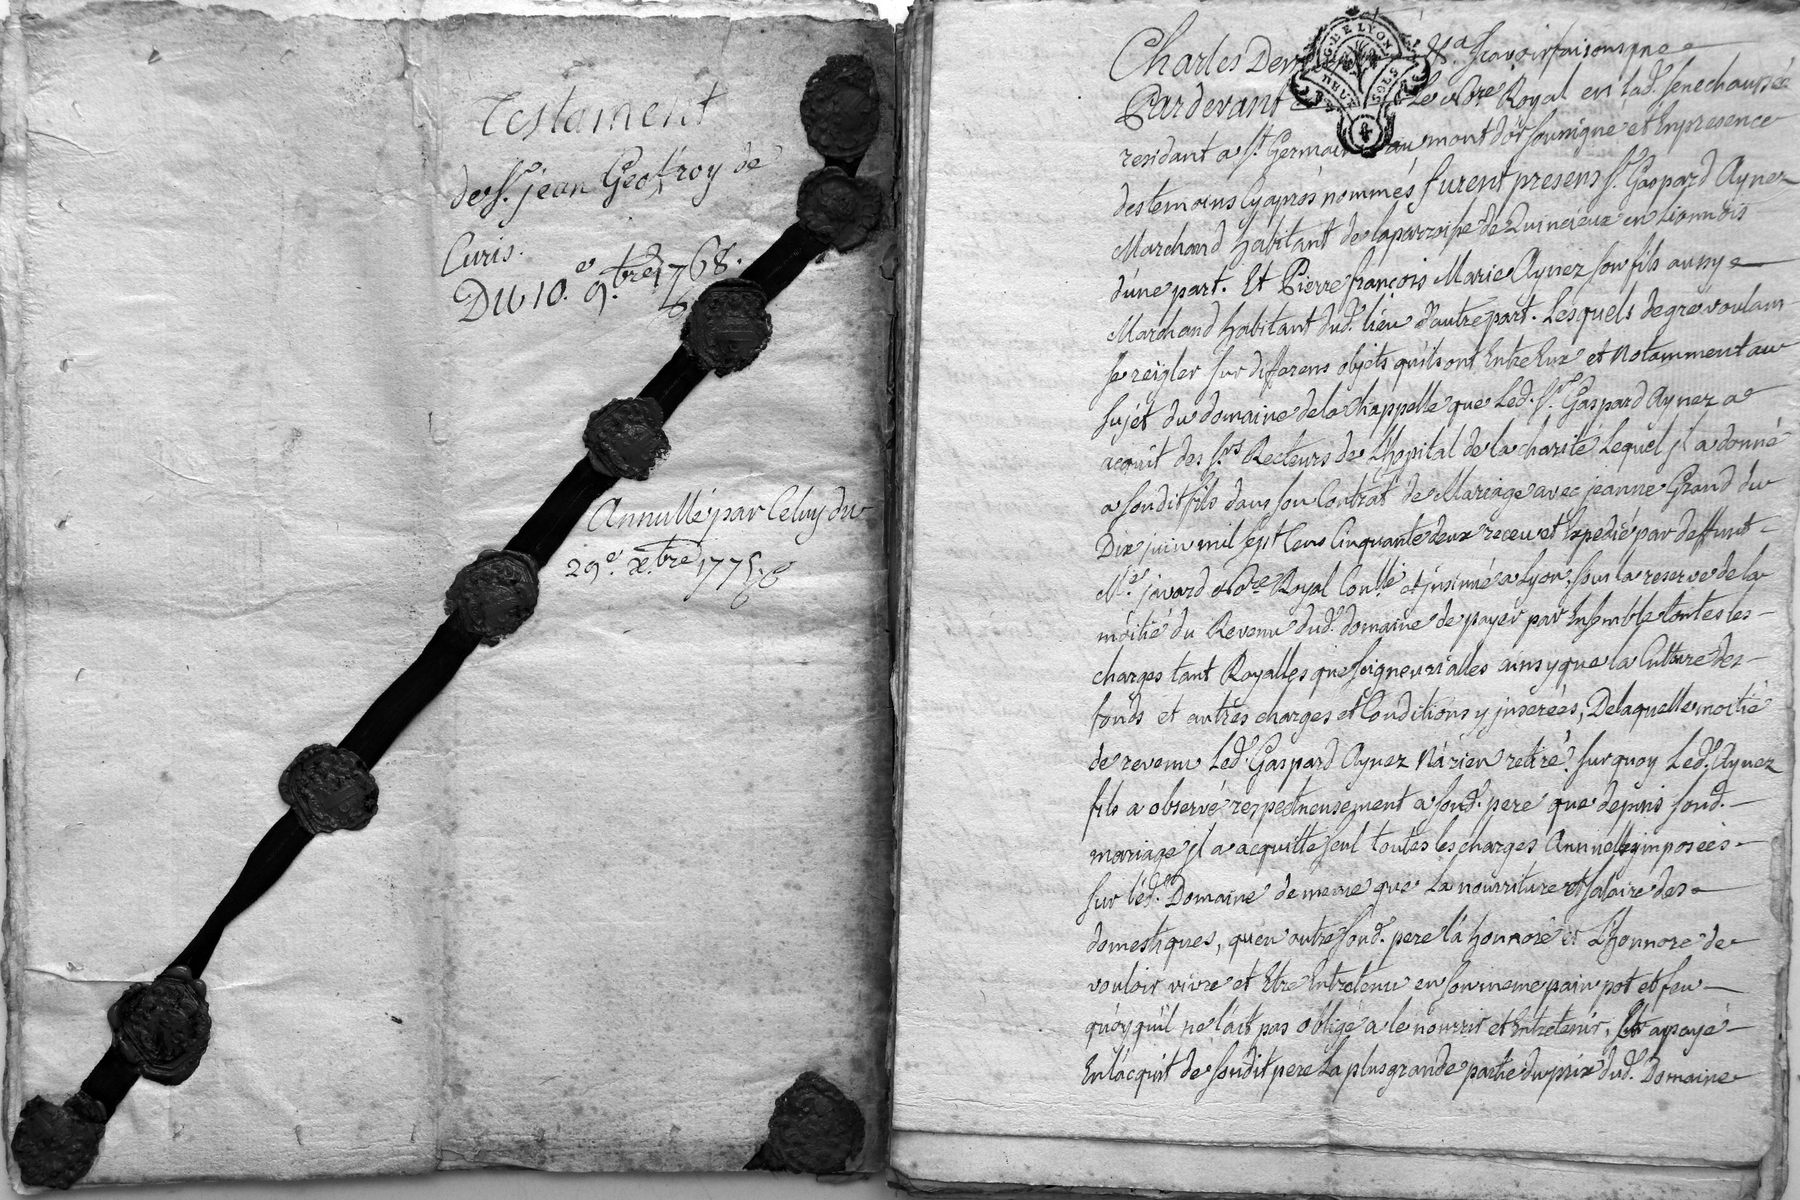 Testament
de Sr. jean Geofroy de
Curis.
DU 10.e 9.bre 1768.
Annullé par Celuy du
29e. xbre 1775
G. DE LYON
DEUX SOLS
Charles Den scavoir faisons que
Pardevant Le Nore. Royal en lad. senechaussée
residant a St. Germain au mont d'or soussigné et En presence
des temoins Cy apres nommés furent presens Sr. Gaspard Aynez
Marchand habitant de la parroisse de Quincieux en Lionnois
d'une part. Et Pierre françois Marie Aynez son fils aussy
Marchand habitant dud. lieu d'autre part. Lesquels de gré voulant
se reigler sur differens objets qu'ils ont Entre Eux et Notamment au
sujet du domaine de la Chappelle que Led. Sr. Gaspard Aynez a
acquit des Srs. Recteurs de L'hopital de la charité Lequel jl a donné
a son dit fils dans son Contrat de Mariage avec jeanne Grand du
Dix juin mil sept Cens Cinquante deux receu et Expedié par deffunt
Me. javard Nore. Royal et jnsinué a Lyon, sous la reserve de la
moitié du Revenu dud. domaine de payer par Ensemble toutes les
charges tant Royalles que seigneurialles ainsy que la Culture des
fonds et autres charges et Conditions y jnserées, De laquelle moitié
de revenu Led. Gaspard Aynez N'a rien retiré, sur quoy Led. Aynez
fils a observé respectueusement a sond. pere que depuis sond.
mariage jl a acquitté seul toutes les charges Annuelles jmposées
sur led. Domaine de meme que La nourriture et salaire des
domestiques, qu'en outre sond. pere l'a honnoré et L'honnore de
vouloir vivre et Etre Entretenu en son meme pain pot et feu
quoyqu'il ne l'ait pas obligé a le nourrir et Entretenir, Et a payé
En l'acquit de son dit pere La plus grande partie du prix dud. Domaine